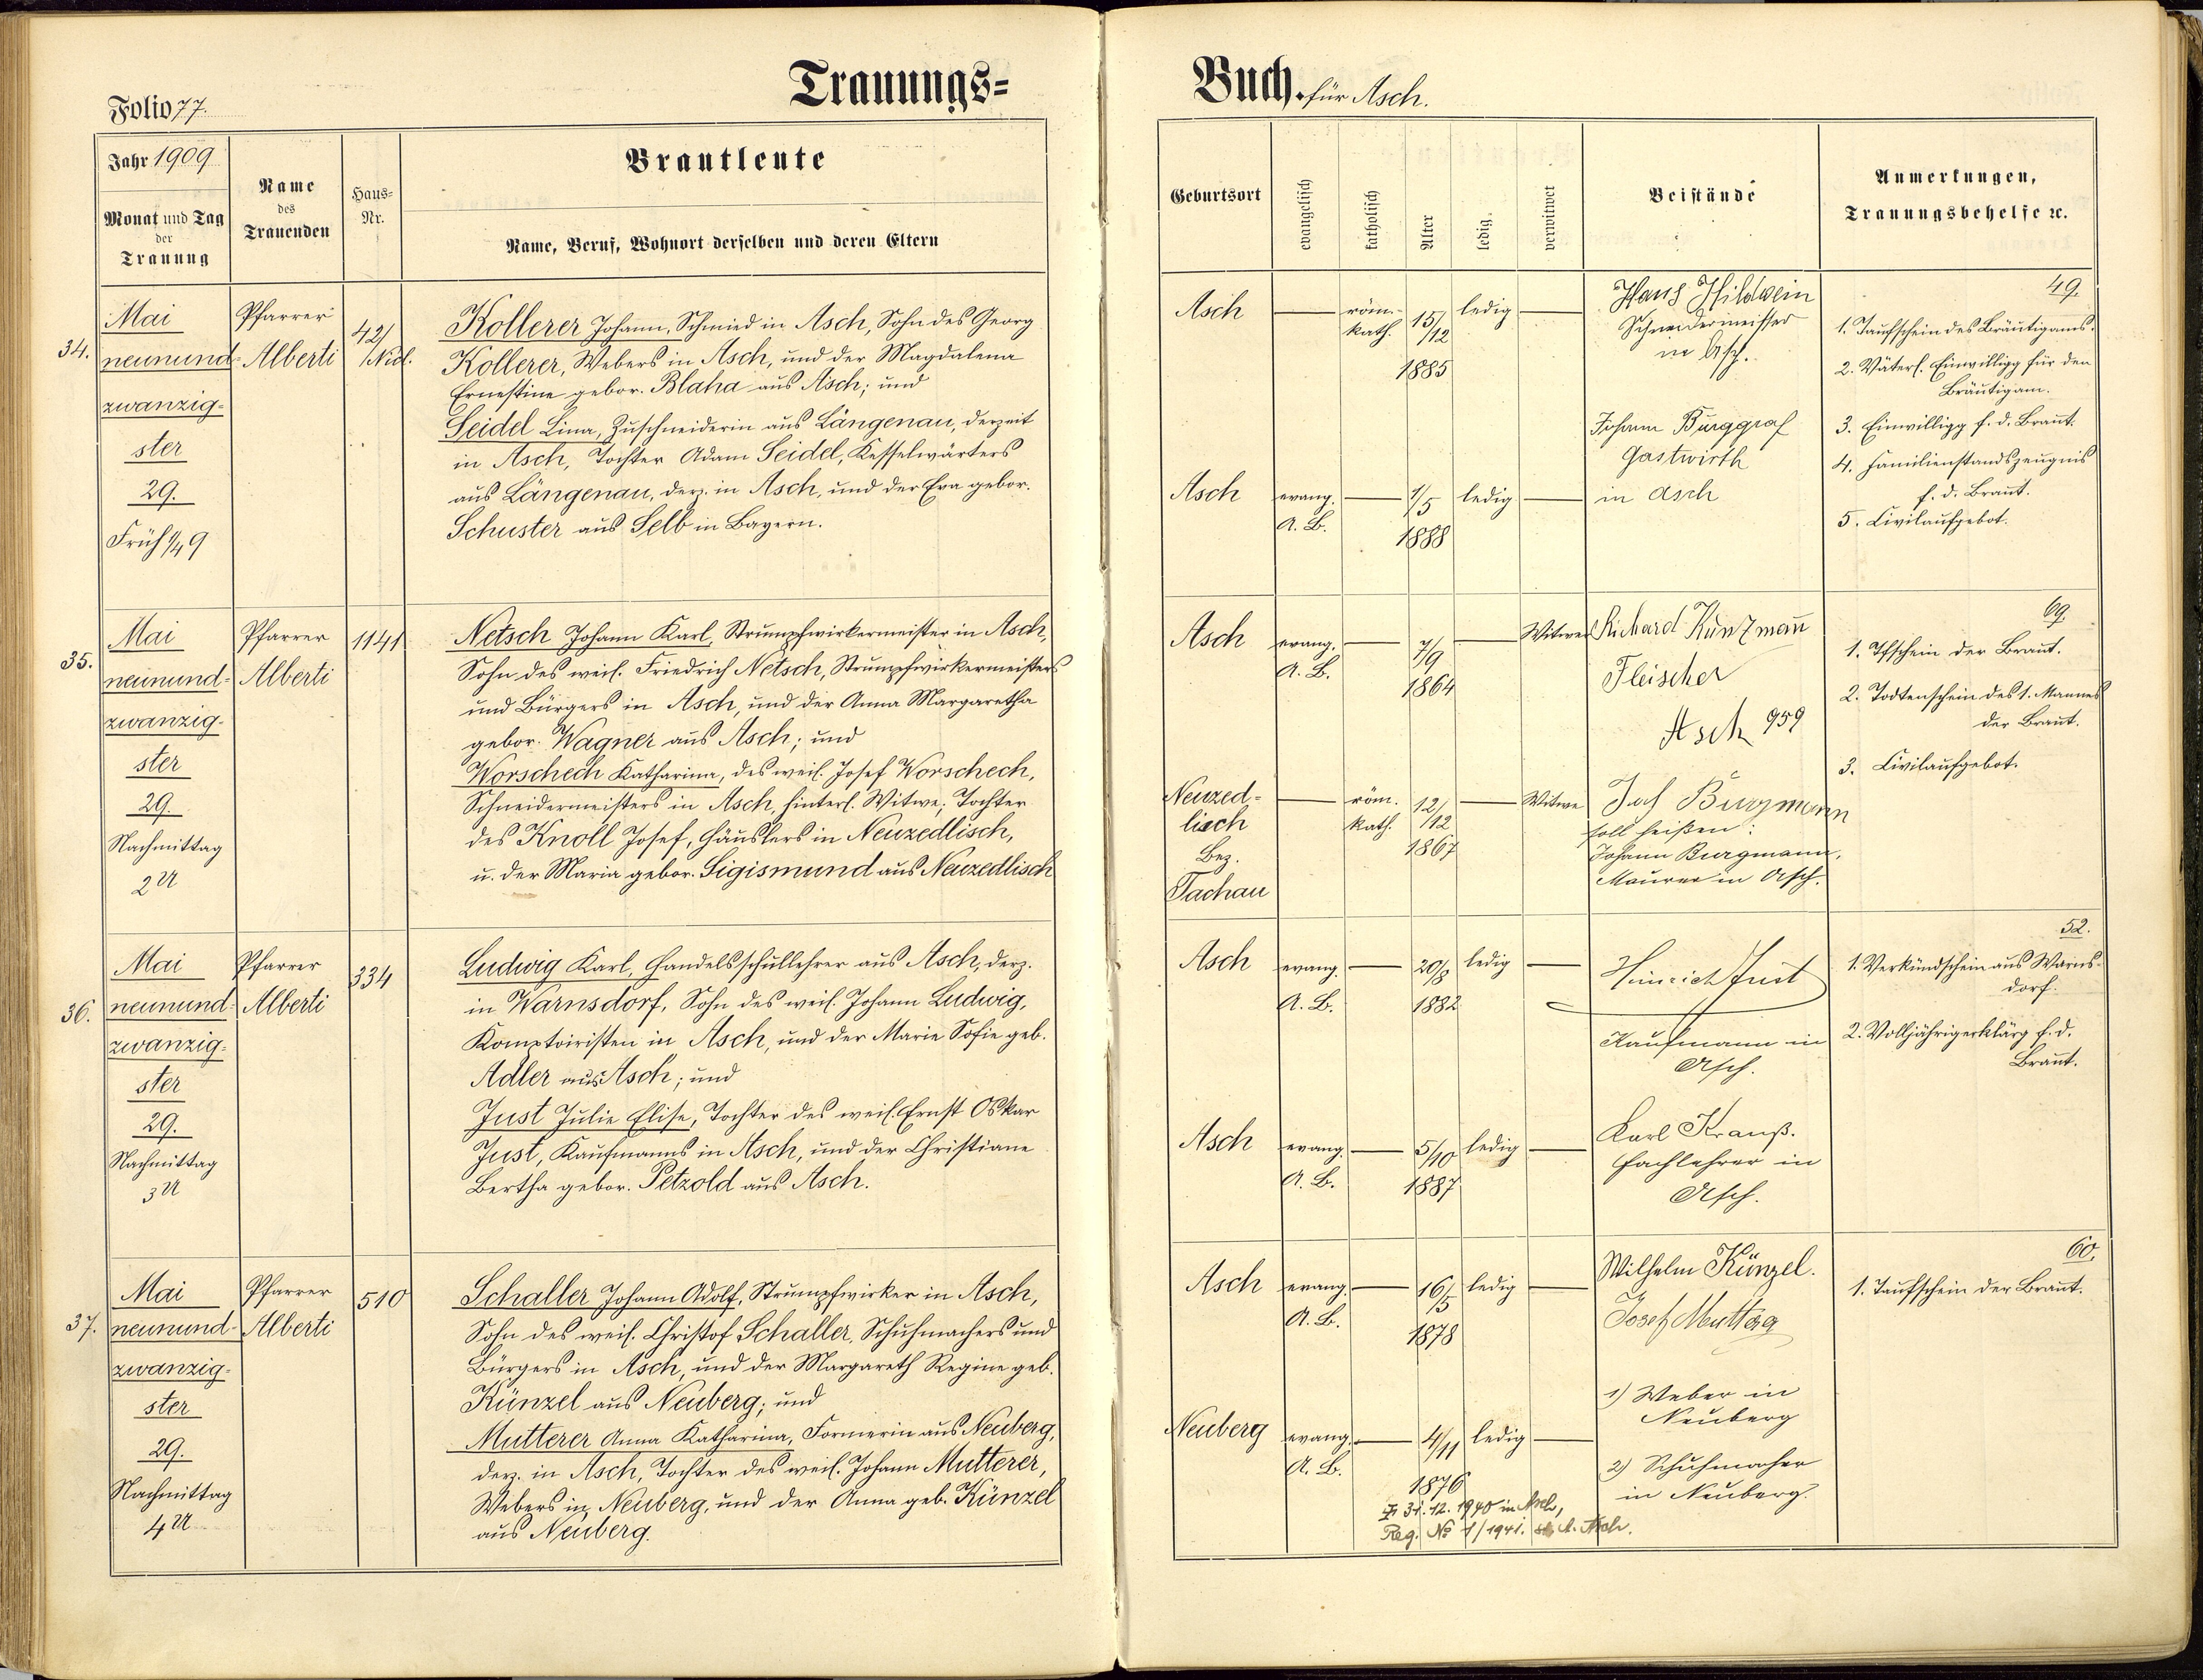 Trauungs=
Folio 77.
Jahr 1909
Monat und Tag
der
Trauung
Name
des
Trauenden
Haus=
Nr.
Brautleute
Name, Beruf, Wohnort derselben und deren Eltern
34.
Mai
neunund=
zwanzig=
ster
29.
Früh 1/4 9
Pfarrer
Alberti
42/
Nied.
Kollerer Johann, Schmied in Asch, Sohn des Georg
Kollerer, Webers in Asch, und der Magdalena
Ernestine gebor. Blaha aus Asch; und
Seidel Lina, Zuschneiderin aus Längenau, derzeit
in Asch, Tochter Adam Seidel, Kesselwärters
aus Längenau, derz. in Asch, und der Eva gebor.
Schuster aus Selb in Bayern.
35.
Mai
neunund=
zwanzig=
ster
29.
Nachmittag
2 U
Pfarrer
Alberti
1141
Netsch Johann Karl, Strumpfwirkermeister in Asch,
Sohn des weil. Friedrich Netsch, Strumpfwirkermeisters
und Bürgers in Asch, und der Anna Margaretha
gebor. Wagner aus Asch; und
Worschech Katharina, des weil. Josef Worschech,
Schneidermeisters in Asch hinterl. Witwe; Tochter
des Knoll Josef, Häuslers in Neuzedlisch,
u. der Maria gebor. Sigismund aus Neuzedlisch
36.
Mai
neunund=
zwanzig=
ster
29.
Nachmittag
3 U
Pfarrer
Alberti
334
Ludwig Karl, Handelsschullehrer aus Asch, derz.
in Warnsdorf, Sohn des weil. Johann Ludwig,
Komptoiristen in Asch, und der Marie Sofie geb.
Adler aus Asch; und
Just Julie Elise, Tochter des weil. Ernst Oskar
Just, Kaufmanns in Asch, und der Christiane
Bertha gebor. Petzold aus Asch.
37.
Mai
neunund=
zwanzig=
ster
29.
Nachmittag
4 U
Pfarrer
Alberti
510
Schaller Johann Adolf, Strumpfwirker in Asch,
Sohn des weil. Christof Schaller, Schuhmachers und
Bürgers in Asch, und der Margareth Regine geb.
Künzel aus Neuberg; und
Mutterer Anna Katharina, Formerin aus Neuberg,
derz. in Asch, Tochter des weil. Johann Mutterer,
Webers in Neuberg, und der Anna geb. Künzel
aus Neuberg.
Buch. für Asch.
Geburtsort
evangelisch
katholisch
Alter
ledig.
verwitwet
Beistände
Anmerkungen,
Trauungsbehelfe ꝛc.
Asch
röm.-
kath.
15/
/12
1885
ledig
Hans Hildwein
Schneidermeister
in Asch.
49.
1. Taufschein des Bräutigams.
2. Väterl. Einwilligg für den
Bräutigam.
3. Einwilligg f. d. Braut.
4. Familienstandszeugnis
f. d. Braut.
5. Civilaufgebot.
Asch
evang.
A. B.
1/5
1888
ledig
Johann Burggraf
Gastwirth
in Asch
Asch
evang.
A. B.
7/9
1864
Witwer
Richard Künzmañ
Fleischer
Asch 959
69.
1. Tfschein der Braut.
2. Todtenschein des 1. Mannes
der Braut.
3. Civilaufgebot.
Neuzed=
lisch
Bez.
Tachau
röm.
kath.
12/
/12
1867
Witwe
Joh Burgmann
soll heißen:
Johann Burgmann,
Maurer in Asch.
Asch
evang.
A. B.
20/8
1882
ledig
Heinrich Just
Kaufmann in
Asch.
52.
1. Verkündschein aus Warns-
dorf.
2. Volljährigerklärg f. d.
Braut.
Asch
evang.
A. B.
5/10
1887
ledig
Karl Krauß.
Fachlehrer in
Asch.
Asch
evang.
A. B.
16/5
1878
ledig
Wilhelm Künzel.
Josef Muttag
60.
1. Taufschein der Braut.
1) Weber in
Neuberg
2) Schuhmacher
in Neuberg.
Neuberg
evang.
A. B.
4/11
1876
ledig
31. 12. 1940 in Asch,
Reg. № 1/1941. St. A. Asch.